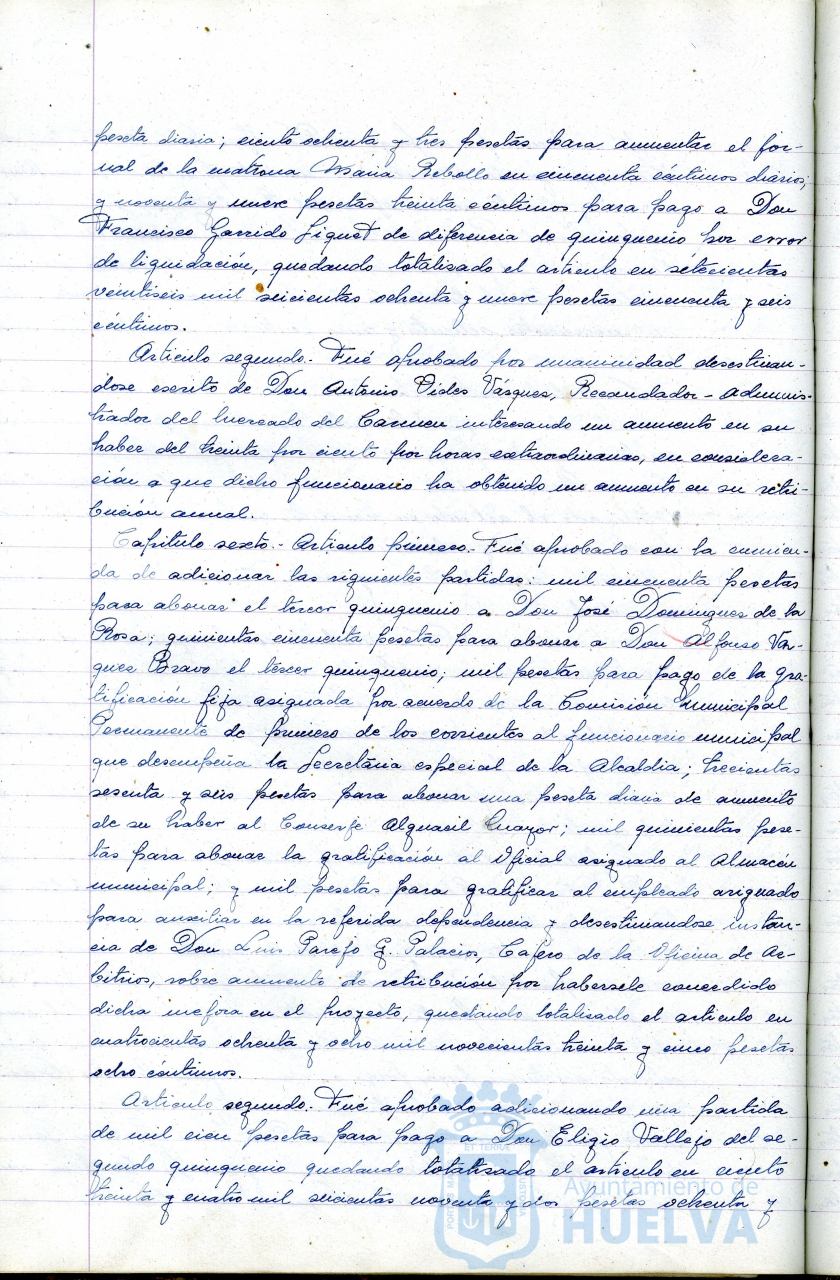 peseta diaria; ciento ochenta y tres pesetas para aumentar el jor-
nal de la matrona Maria Rebollo en cincuenta céntimos diarios;
y noventa y nueve pesetas treinta céntimos para pago a Don
Francisco Garrido de diferencia de quinquenio por error
de liquidación, quedando totalisado el articulo en setecientas
veintiseis mil seicientas ochenta y nueve pesetas cincuenta y seis
céntimos.
Articulo segundo.- Fué aprobado por unanimidad desestiman-
dose escrito de Don Antonio Vides Vásques, Recaudador-adminis-
trador del Mercado del Carmen interesando un aumento en su
haber del treinta por ciento por horas extraordinarias, en considera-
ción a que dicho funcionario ha obtenido un aumento en su retri-
bución anual.
Capitulo sexto.- Articulo primero.- Fué aprobado con la enmien-
da de adicionar las siguientes partidas: mil cincuenta pesetas
para abonar el tercer quinquenio a Don José Domingues de la
Rosa; quinientas cincuenta pesetas para abonar a Don Alfonso Vas-
ques Bravo el tercer quinquenio; mil pesetas para pago de la gra-
tificación fija asignada por acuerdo de la Comisión Municipal
Permanente de primero de los corrientes al funcionario municipal
que desempeña la Secretaria especial de la Alcaldia; trecientas
sesenta y seis pesetas para abonar una peseta diaria de aumento
de su haber al Conserje Alguacil Mayor; mil quinientas pese-
tas para abonar la gratificación al Oficial asignado al Almacén
municipal; y mil pesetas para gratificar al empleado asignado
para auxiliar en la referida dependencia y desestimandose instan-
cia de Don Luis Parejo G. Palacios, Cajero de la Oficina de Ar-
bitrios, sobre aumento de retribución por habersele concedido
dicha mejora en el proyecto, quedando totalisado el articulo en
cuatrocientas ochenta y ocho mil novecientas treinta y cinco pesetas
ocho céntimos.
Articulo segundo.- Fué aprobado adicionando una partida
de mil cien pesetas para pago a Don Eligio Vallejo del se-
gundo quinquenio quedando totalisado el articulo en ciento
treinta y cuatro mil seicientas noventa y dos pesetas ochenta y
Ayuntamiento de
HUELVA